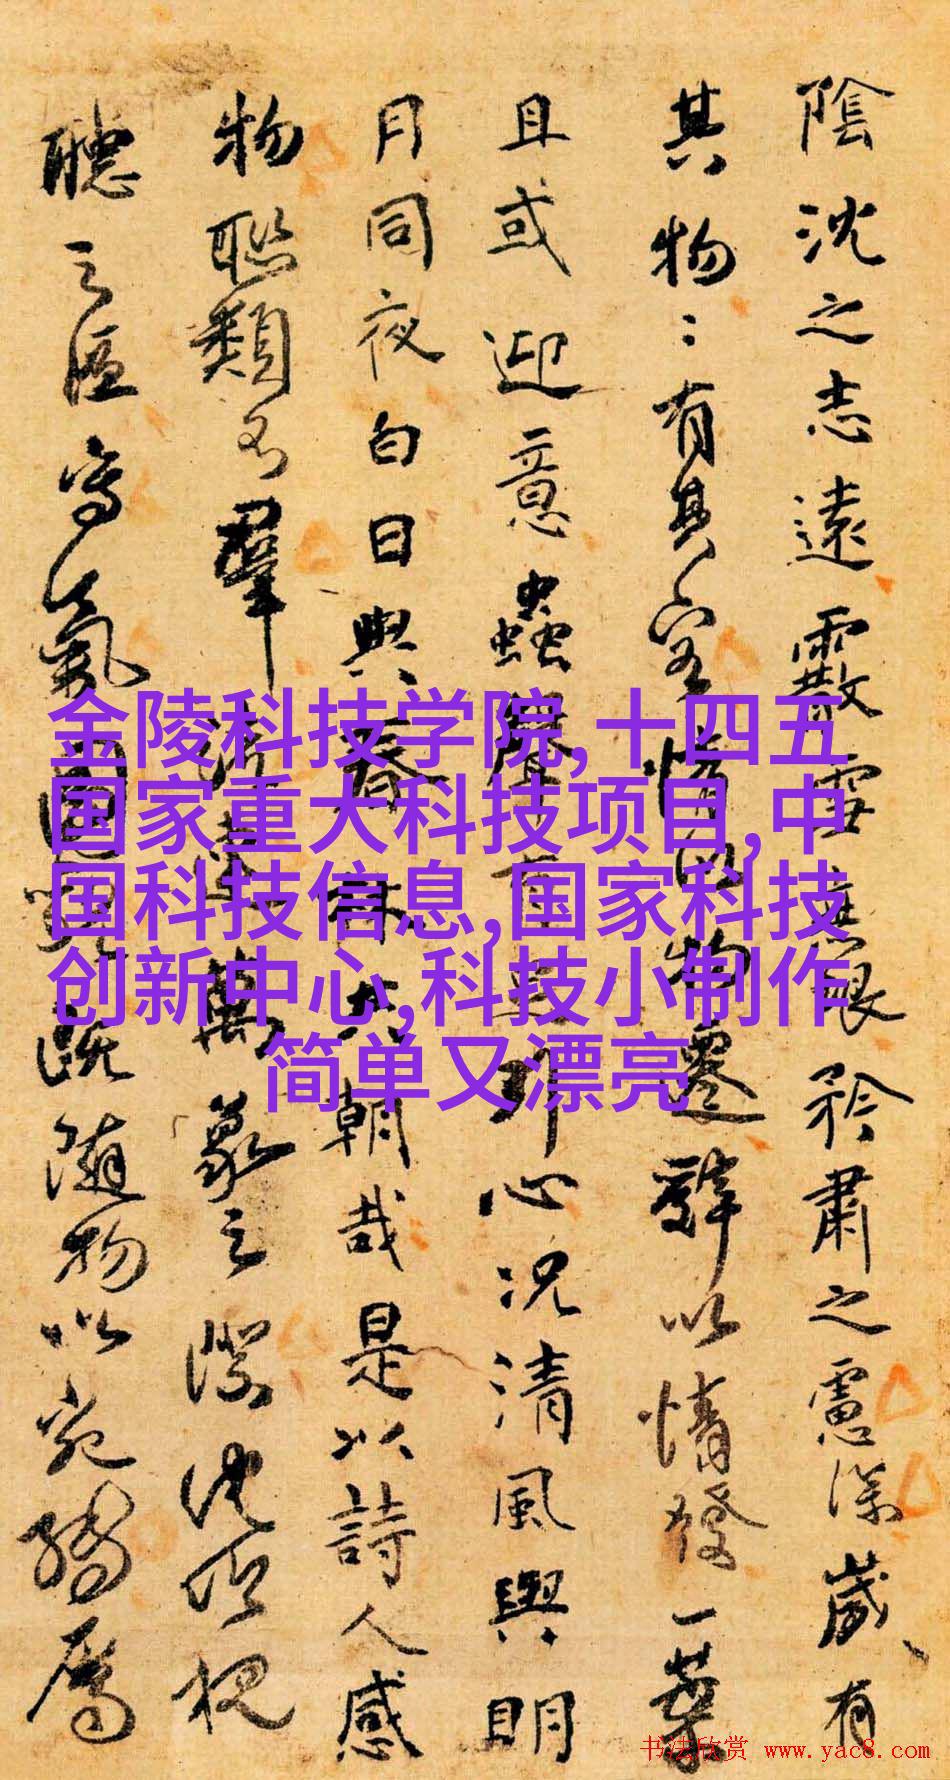 陰沈之志遠霰雪無垠矜肅之慮深歲有
其物〻有其容情以物遷辭以情發一葉
且或迎意蟲聲有足引心況清風與明
月同夜白日與春林共朝哉是以詩人感
物聯類不窮流連萬象之際沈吟視
聽之區寫氣圖貌既隨物以宛轉屬
金陵科技学院,十四五
国家重大科技项目,中
国科技信息,国家科技
创新中心,科技小制作
简单又漂亮
书法欣赏 www.yac8.com